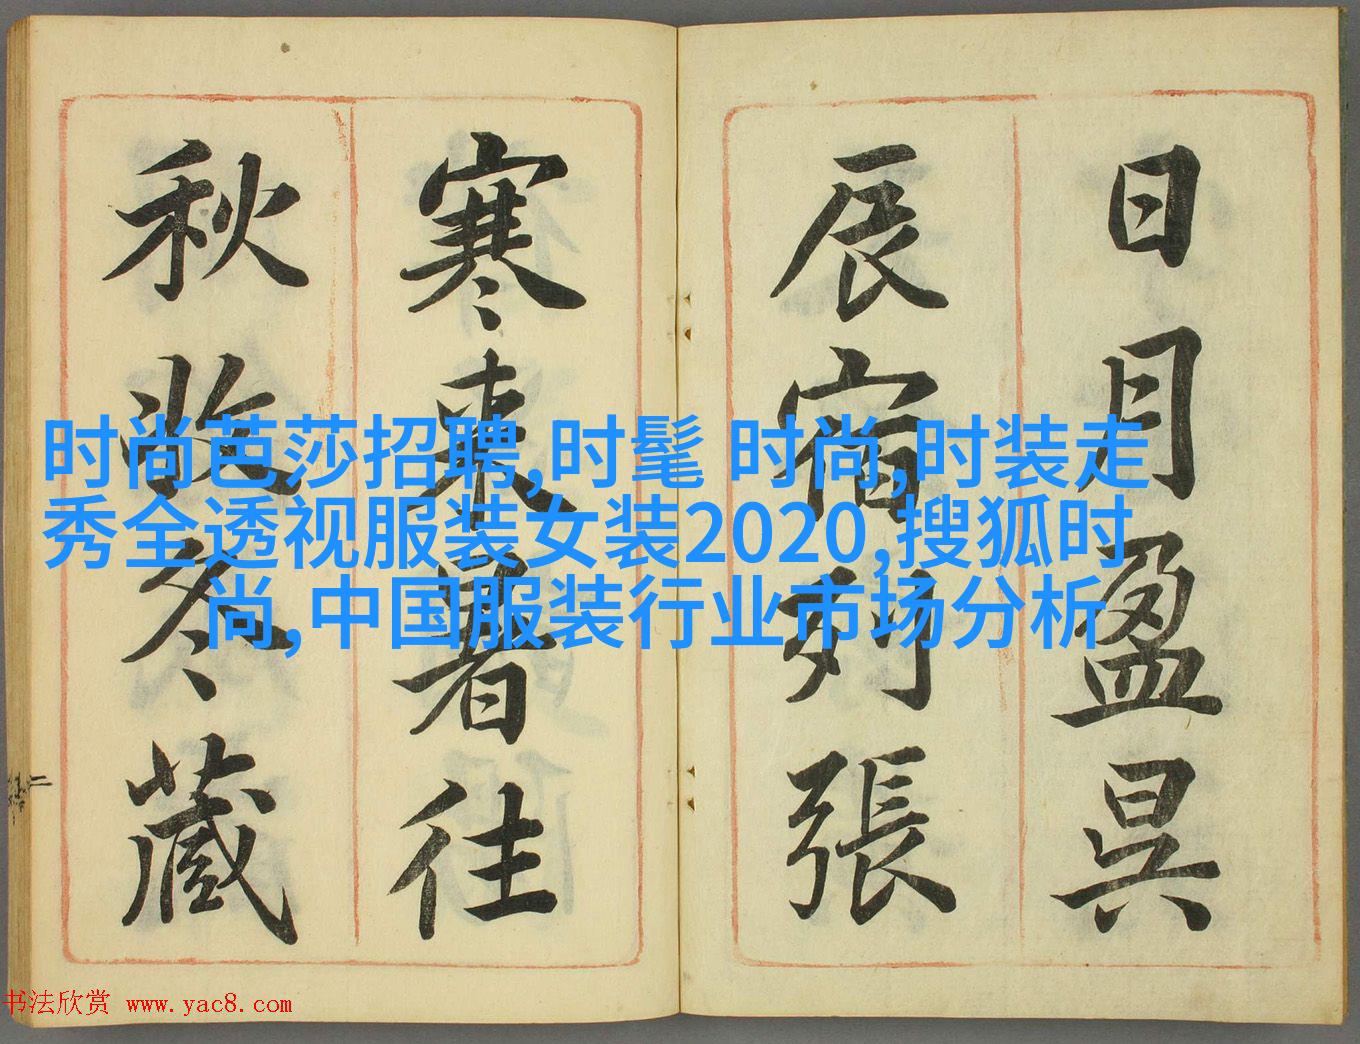 日月盈昃
辰宿列張
寒來暑往
秋收冬藏
时尚芭莎招聘,时髦 时尚,时装走
秀全透视服装女装2020,搜狐时
尚,中国服装行业市场分析
书法欣赏 www.yac8.com